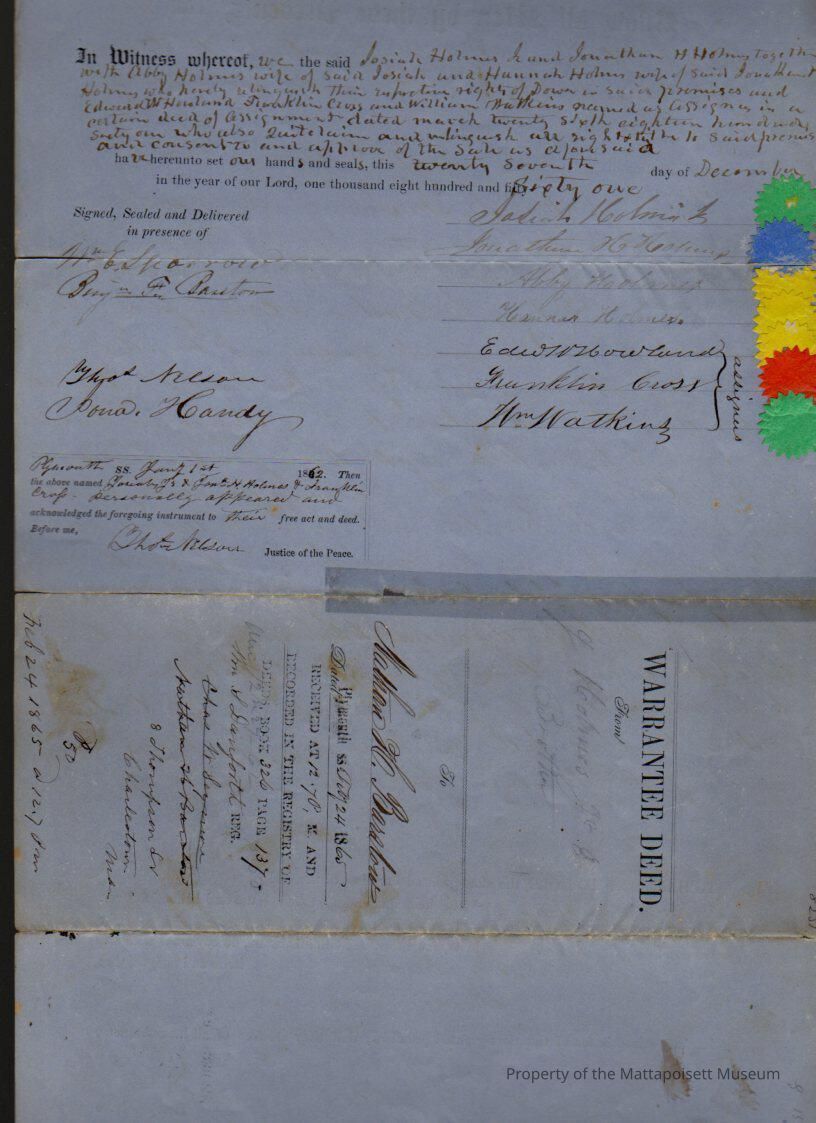 In Witness whereof, we the said Josiah Holmes Jr and Jonathan H Holmes together
with Abby Holmes wife of said Josiah and Hannah Holmes wife of said Jonathan H
Holmes who hereby relinquish their respective rights of Dower in said premises and
Edward W Howland Franklin Cross and William Watkins named as Assignees in a
certain deed of Assignment dated march twenty sixth eighteen hundred
sixty one who also Quitclaim and relinquish all right & title to said premises
and consent to and approve of the Sale as aforesaid
have hereunto set our hands and seals, this twenty Seventh day of December
in the year of our Lord, one thousand eight hundred and fifty sixty one
Signed, Sealed and Delivered
in presence of
Josiah Holmes Jr
Jonathan H Holmes
Wm E. Sparrow
Abby Holmes
Benjn F. Barstow
Hannah Holmes.
Edw W Howland
Thos Nelson
Franklin Cross
assignees
Jona. Handy
Wm Watkins
Plymouth SS. Jany 1st 1862. Then
the above named Josiah Jr & Jona H Holmes & Franklin
Cross personally appeared and
acknowledged the foregoing instrument to their free act and deed.
Before me,
Thos Nelson Justice of the Peace.
WARRANTEE DEED.
From
J Holmes Jr &
Brother
To
Nathan H. Barstow
Dated
Plymouth SS Feb 24 1865
RECEIVED AT 12.7 P. M. AND
RECORDED IN THE REGISTRY OF
DEEDS BOOK 326 PAGE 137
Wm S Danforth REG.
Chas W
Nathan H Barstow
8 Thompson
Charlestown
50
Feb 24 1865
Property of the Mattapoisett Museum